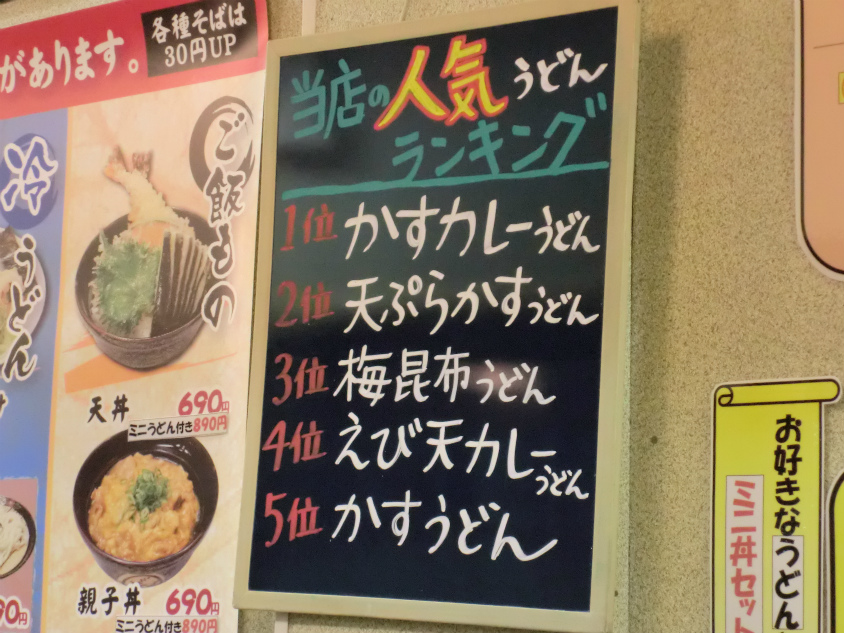 があります。
各種そばは
30円UP
冷
うどん
ご飯もの
天丼 690円
ミニうどん付き890円
親子丼 690円
ミニうどん付き890円
90円
当店の人気うどん
ランキング
1位 かすカレーうどん
2位 天ぷらかすうどん
3位 梅昆布うどん
4位 えび天カレーうどん
5位 かすうどん
お好きなうどん
ミニ丼セット